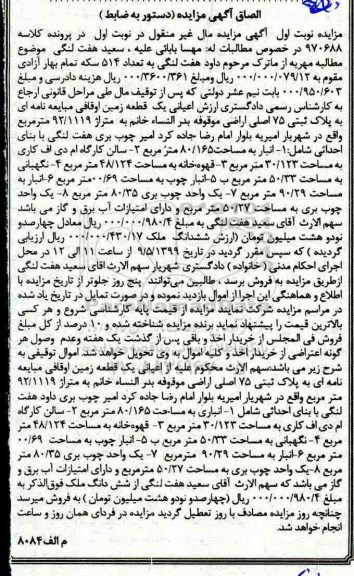 الصاق آگهی مزایده (دستور به ضابط)
مزایده نوبت اول آگهی مزایده مال غیر منقول در نوبت اول در پرونده کلاسه
۹۷۰۶۸۸ در خصوص مطالبات له: مهسا بابائی علیه ، سعید هفت لنگی موضوع
مطالبه مهریه از ماترک مرحوم داود هفت لنگی به تعداد ۵۱۴ سکه تمام بهار آزادی
مقوم به ۰۰۰/۰۰۰/۰۷۹/۱۲ ریال ومبلغ ۰۰۰/۳۶۰۰/۳۶۱ ریال هزینه دادرسی و مبلغ
۰۰۰/۹۵۰/۶۰۳ بابت نیم عشر دولتی که پس از توقیف مال طی مراحل قانونی ارجاع
به کارشناس رسمی دادگستری ارزش اعیانی یک قطعه زمین اوقافی مبایعه نامه ای
به پلاک ثبتی ۷۵ اصلی اراضی موقوفه بدر النساء خانم به متراژ ۹۲/۱۱۱۹ مترمربع
واقع در شهریار امیریه بلوار امام رضا جاده کرد امیر چوب بری هفت لنگی با بنای
احداثی شامل:۱- انبار به مساحت۸۰/۱۶۵ متر مربع ۲- سالن کارگاه ام دی اف کاری
به مساحت ۳۰/۱۲۳ متر مربع ۳-قهوه خانه به مساحت ۴۸/۱۲۴ متر مربع ۴- نگهبانی
به مساحت ۵۰/۳۳ متر مربع ب ۵-انبار چوب به مساحت ۰۰/۶۹متر مربع ۶-انبار به
مساحت ۹۰/۲۹ متر مربع ۷- یک واحد چوب بری ۸۰/۳۵ متر مربع ۸- یک واحد
چوب بری به مساحت ۵۰/۲۷ متر مربع و دارای امتیازات آب برق و گاز می باشد
سهم الارث آقای سعید هفت لنگی به مبلغ ۰۰۰/۰۰۰/۹۸۰/۴ ریال معادل چهارصدو
نودو هشت میلیون تومان (ارزش ششدانگ ملک ۰۰۰/۰۰۰/۴۳۰/۱۷ ریال ارزیابی
گردیده ) که سپس مقرر گردید در تاریخ ۹/۵/۱۳۹۹ از ساعت ۱۱ الی ۱۲ در محل
اجرای احکام مدنی ( خانواده ) دادگستری شهریار سهم الارث اقای سعید هفت لنگی
ازطریق مزایده به فروش برسد ، طالبین می توانند پنج روز جلوتر از تاریخ مزایده با
اطلاع و هماهنگی این اجرا از اموال بازدید نموده و در صورت تمایل در تاریخ یاد شده
در مراسم مزایده شرکت نمایند مزایده از قیمت پایه کارشناسی شروع و هر کسی
بالاترین قیمت را پیشنهاد نماید برنده مزایده شناخته شده و ۱۰ درصد از کل مبلغ
فروش فی المجلس از خریدار اخذ و باقی پس از گذشت یک هفته وعدم وصول هر
گونه اعتراضی از خریدار اخذ و کلیه اموال به وی تحویل خواهد شد. اموال توقیفی به
شرح زیر می باشد:سهم الارث محکوم علیه از اعیانی یک قطعه زمین اوقافی مبایعه
نامه ای به پلاک ثبتی ۷۵ اصلی اراضی موقوفه بدر النساء خانم به متراژ ۹۲/۱۱۱۹
متر مربع واقع در شهریار امیریه بلوار امام رضا جاده کرد امیر چوب بری داود هفت
لنگی با بنای احداثی شامل ۱- انباری به مساحت ۸۰/۱۶۵ متر مربع ۲- سالن کارگاه
ام دی اف کاری به مساحت ۳۰/۱۲۳ متر مربع ۳- قهوه خانه به مساحت ۴۸/۱۲۴ متر
مربع ۴- نگهبانی به مساحت ۵۰/۳۳ متر مربع ب ۵- انبار چوب به مساحت ۰۰/۶۹
متر مربع ۶-انبار به مساحت ۹۰/۲۹ مترمربع ۷- یک واحد چوب بری ۸۰/۳۵ متر
مربع ۸-یک واحد چوب بری به مساحت ۵۰/۲۷ مترمربع و دارای امتیازات آب برق و
گاز می باشد که سهم الارث آقای سعید هفت لنگی از شش دانگ ملک فوق الذکر به
مبلغ ۰۰۰/۰۰۰/۹۸۰/۴ ریال (چهارصدو نودو هشت میلیون تومان ) به فروش میرسد
چنانچه روز مزایده مصادف با روز تعطیل گردید مزایده در فردای همان روز و ساعت
انجام خواهد شد.
م الف۸۰۸۴